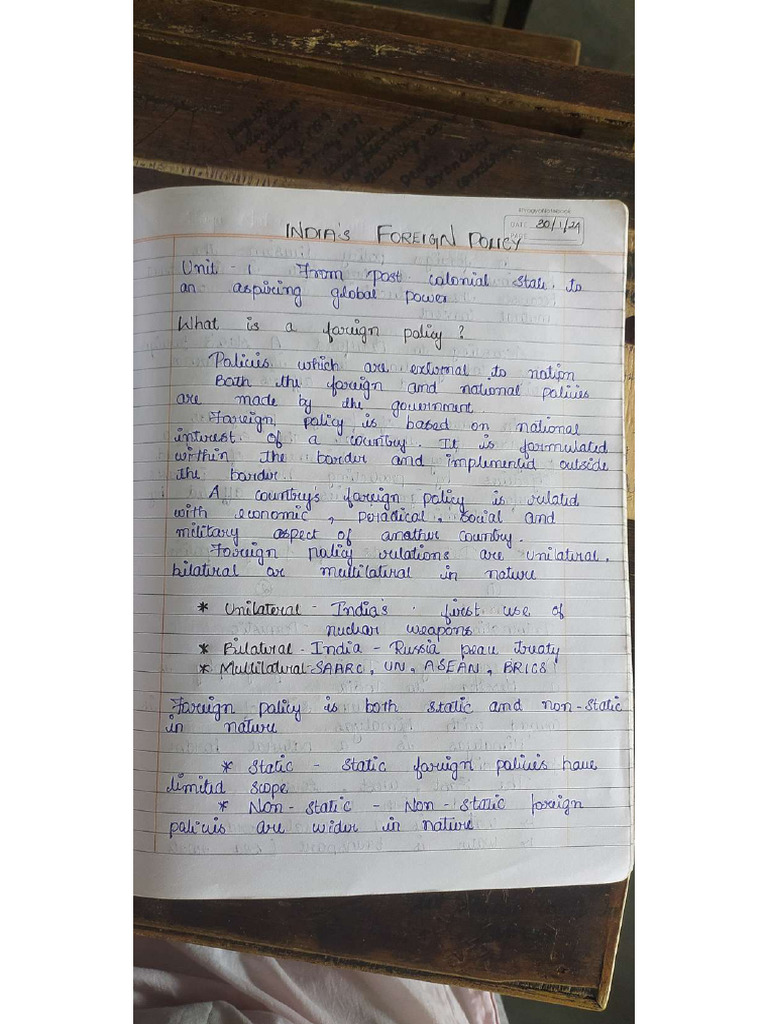 DATE 30/1/24
PAGE
INDIA'S FOREIGN POLICY
Unit - 1 From post colonial state to
an aspiring global power
What is a foreign policy ?
Policies which are external to nation
Both the foreign and national policies
are made by the government.
Foreign policy is based on national
interest of a country. It is formulated
within the border and implemented outside
the border.
A country's foreign policy is related
with economic, poradical, social and
military aspect of another country.
Foreign policy relations are unilateral,
bilateral or multilateral in nature
* Unilateral - India's first use of
nuclear weapons
* Bilateral - India - Russia peace treaty
* Multilateral - SAARC, UN, ASEAN, BRICS
Foreign policy is both static and non-static
in nature
* Static - static foreign policies have
limited scope
* Non-static - Non-static foreign
policies are wider in nature